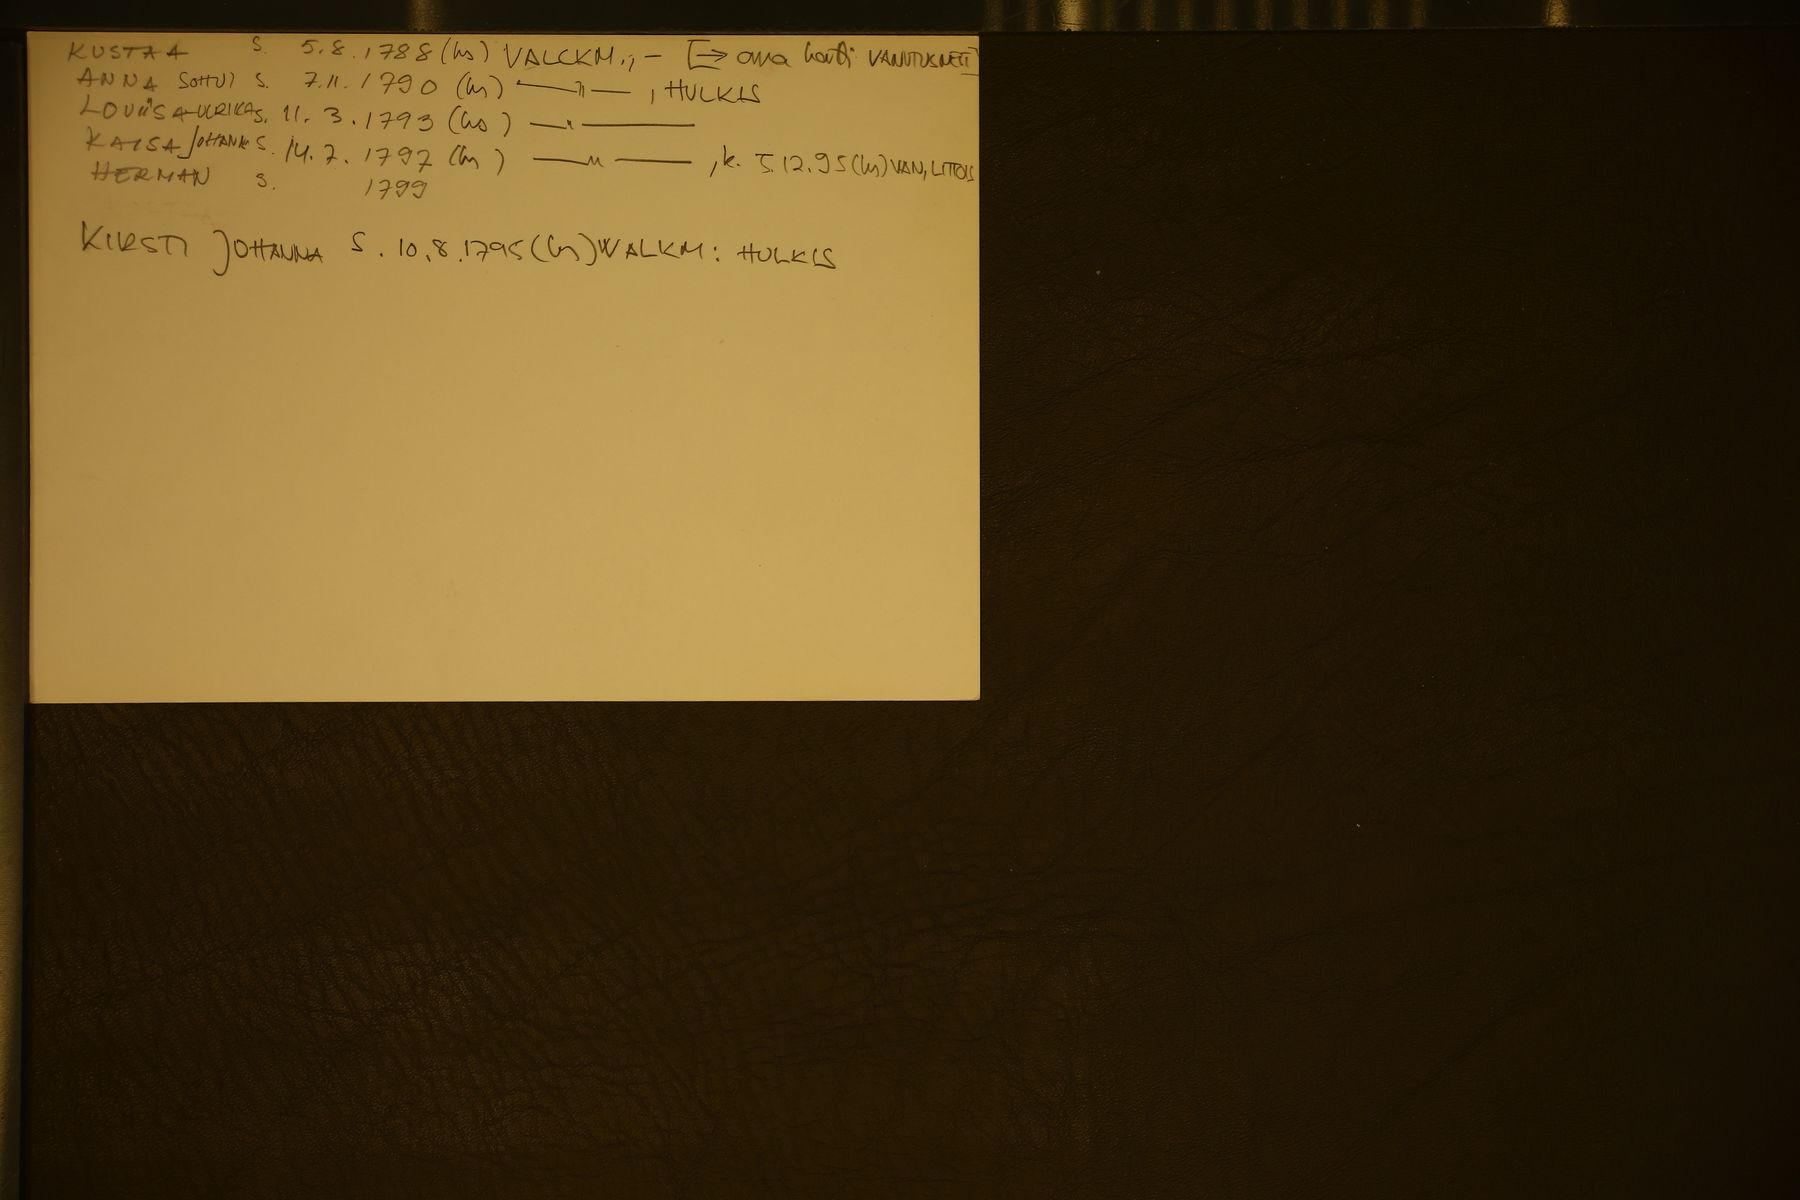 KUSTAA S. 5.8.1788 (hs) VALCKM.; — [⇒ oma kortti
ANNA SOHVI S. 7.11.1790 (hs) —"— , HULKIS
LOVIISA ULRIKA S. 11.3.1793 (hs) —"—
KAISA JOHANNA S. 14.7.1797 (hs) —"— , k. 5.12.95 (hs) VAN, LITTOIS
HERMAN S. 1799
KIRSTI JOHANNA S. 10.8.1795 (hs) WALKM: HULKIS